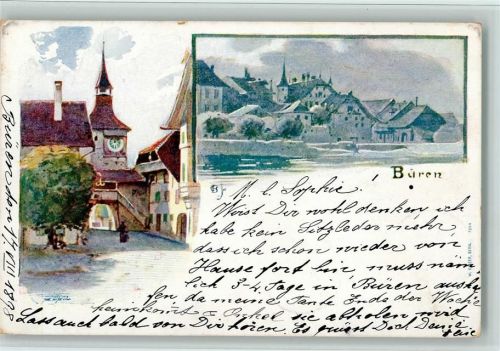 Büren
M. l. Sophie!
Wirst Dir wohl denken ich
habe kein Sitzleder mehr,
dass ich schon wieder von
Hause fort bin, muss näm
lich 3-4 Tage in Büren aushe
fen da meine Tante Ende der Woche
heimkommt & sie abholen wird
Lass auch bald von Dir hören. Es grüsst Dich Deine
Büren den 17 VIII 1898